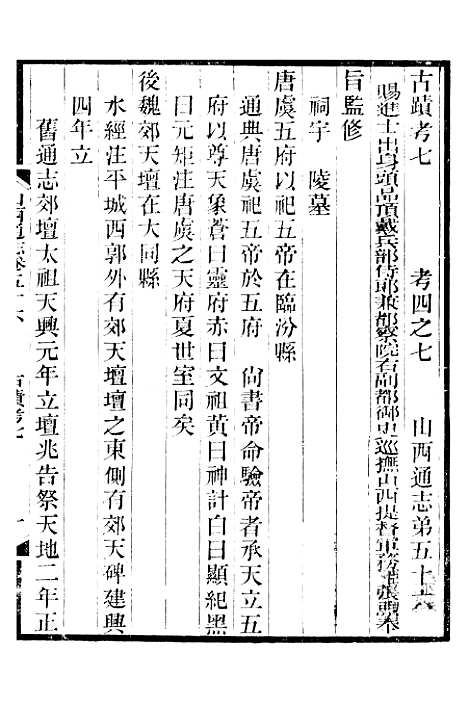 古蹟考七 考四之七 山西通志第五十六
賜進士出身頭品頂戴兵部侍郎兼都察院右副都御史巡撫山西提督軍務
旨監修
祠宇 陵墓
唐虞五府以祀五帝在臨汾縣
通典唐虞祀五帝於五府 尙書帝命驗帝者承天立五
府以尊天象蒼曰靈府赤曰文祖黃曰神計白曰顯紀黑
曰元矩注唐虞之天府夏世室同矣
後魏郊天壇在大同縣
水經注平城西郭外有郊天壇壇之東側有郊天碑建興
四年立
舊通志郊壇太祖天興元年立壇兆告祭天地二年正